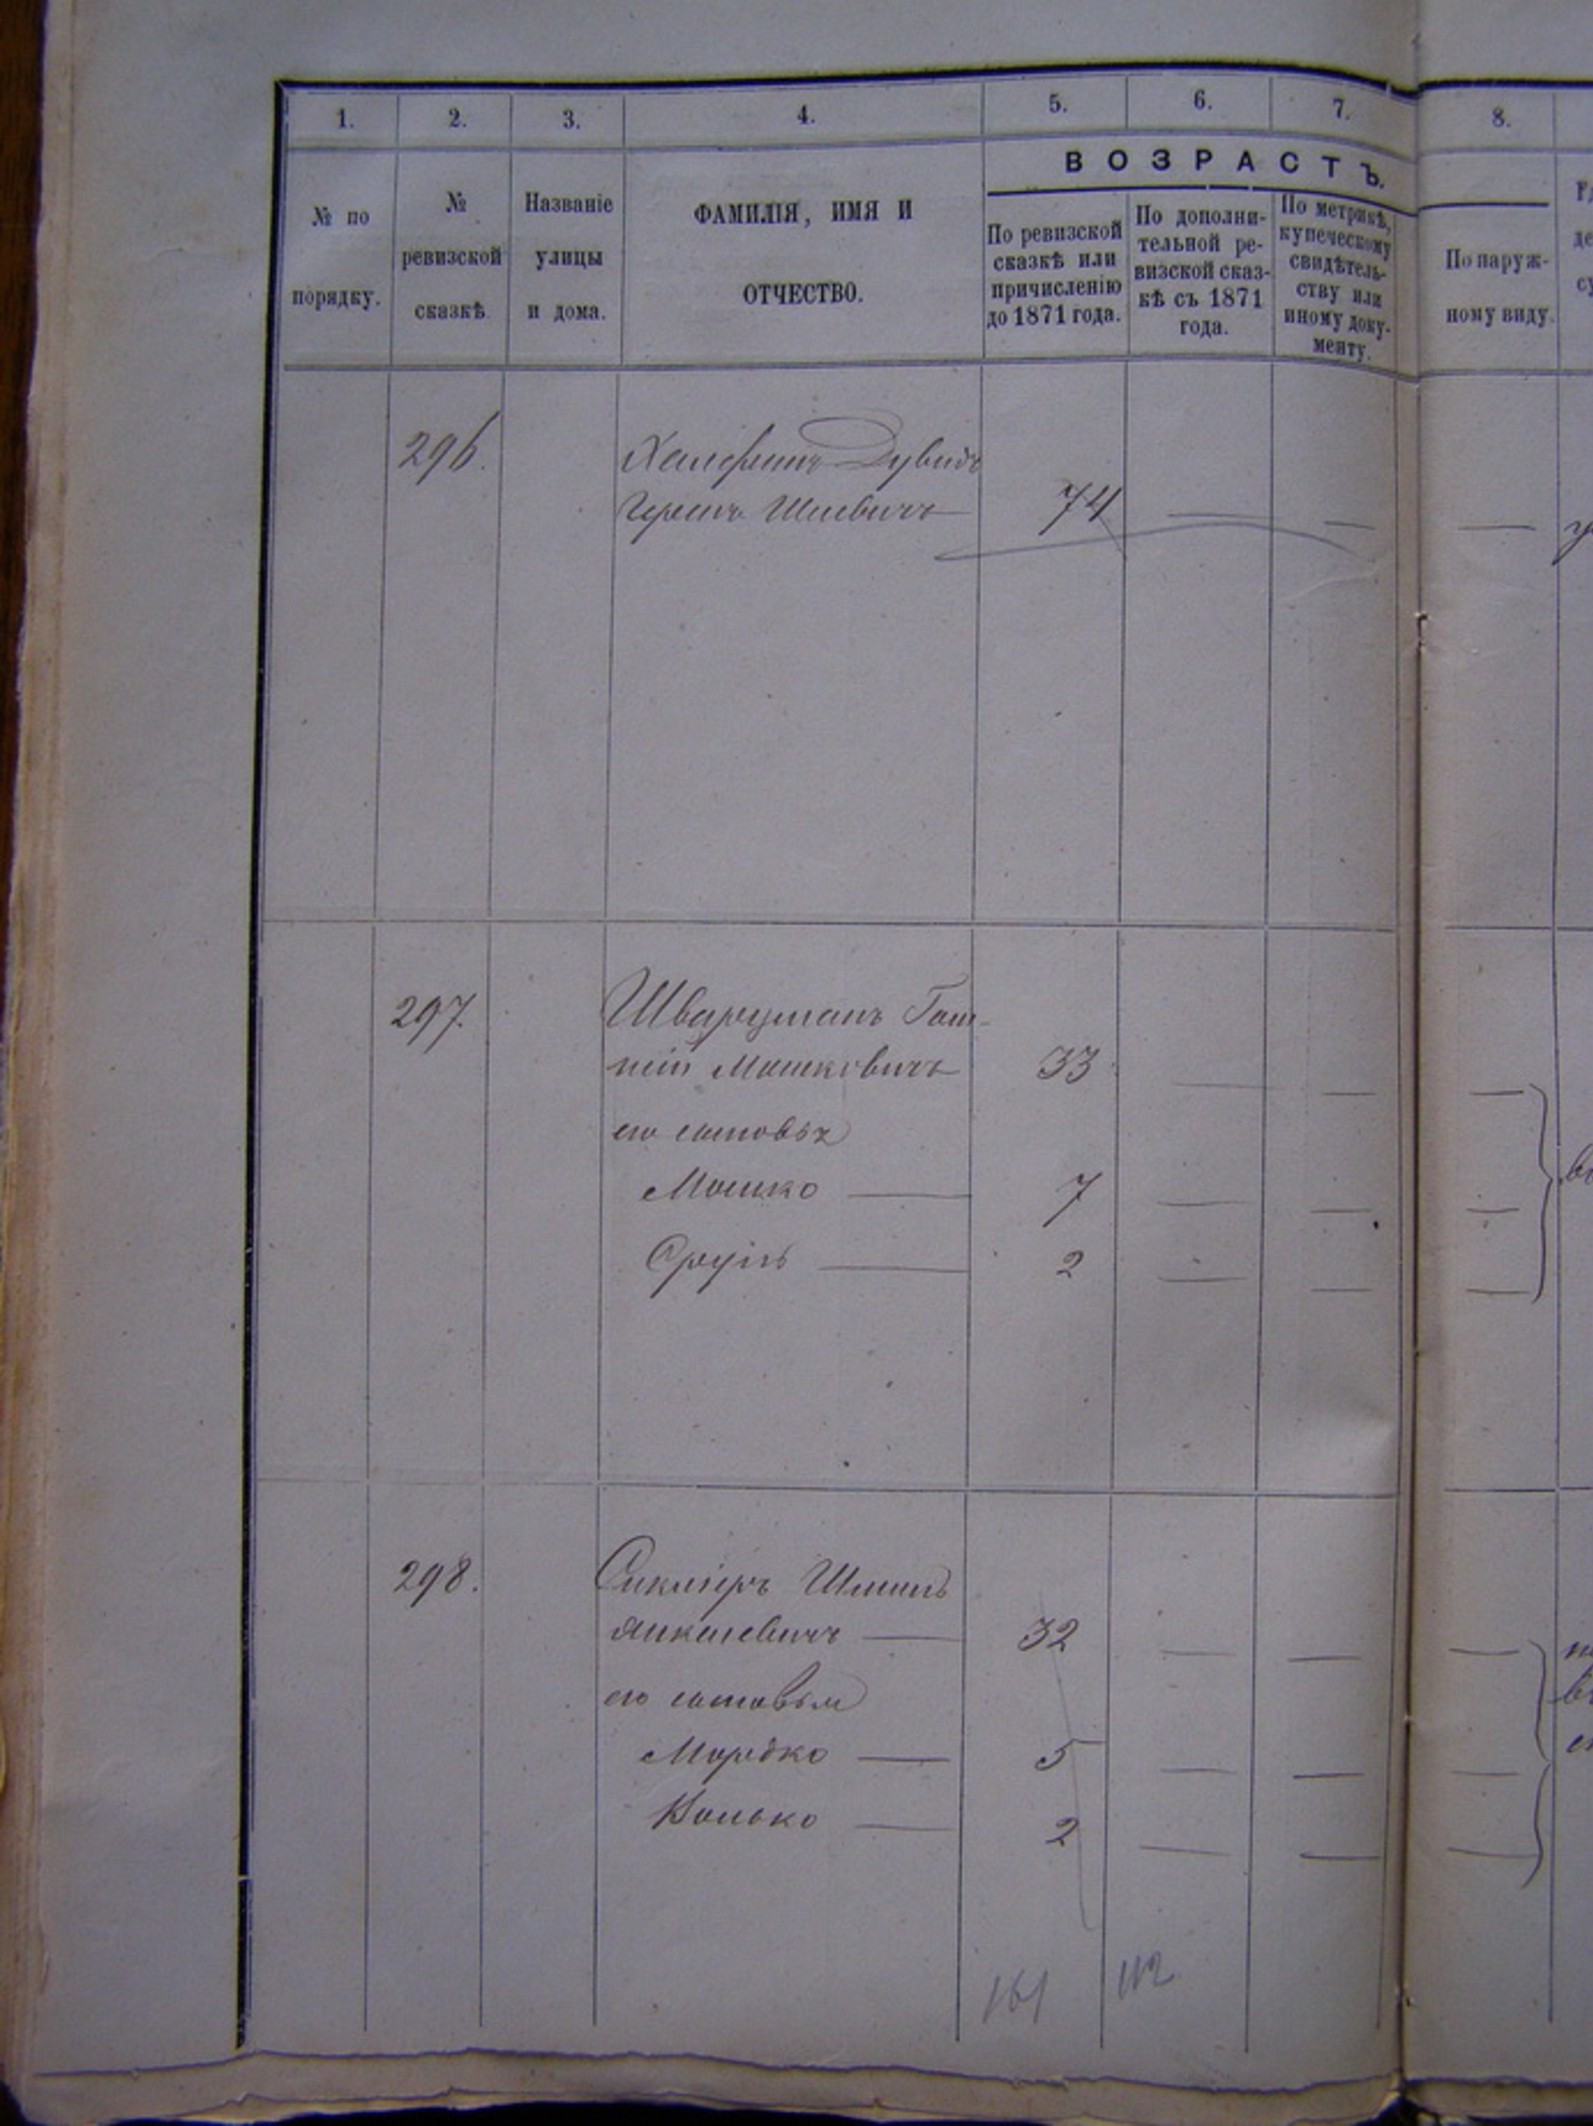 1. 2. 3. 4. 5. 6. 7. 8.
ВОЗРАСТЪ.
№ по порядку.
№ ревизской сказкѣ.
Названіе улицы и дома.
ФАМИЛІЯ, ИМЯ И ОТЧЕСТВО.
По ревизской сказкѣ или причисленію до 1871 года.
По дополнительной ревизской сказкѣ съ 1871 года.
По метрикѣ, купеческому свидѣтельству или иному документу.
По наружному виду.
296. Дувидъ
74
297. Шварцманъ
Мошковичъ 33
его сыновья
Мошко 7
Сруль 2
298. Шмиль
Янкелевичъ 32
его сыновья
Мордко 5
2
161 112